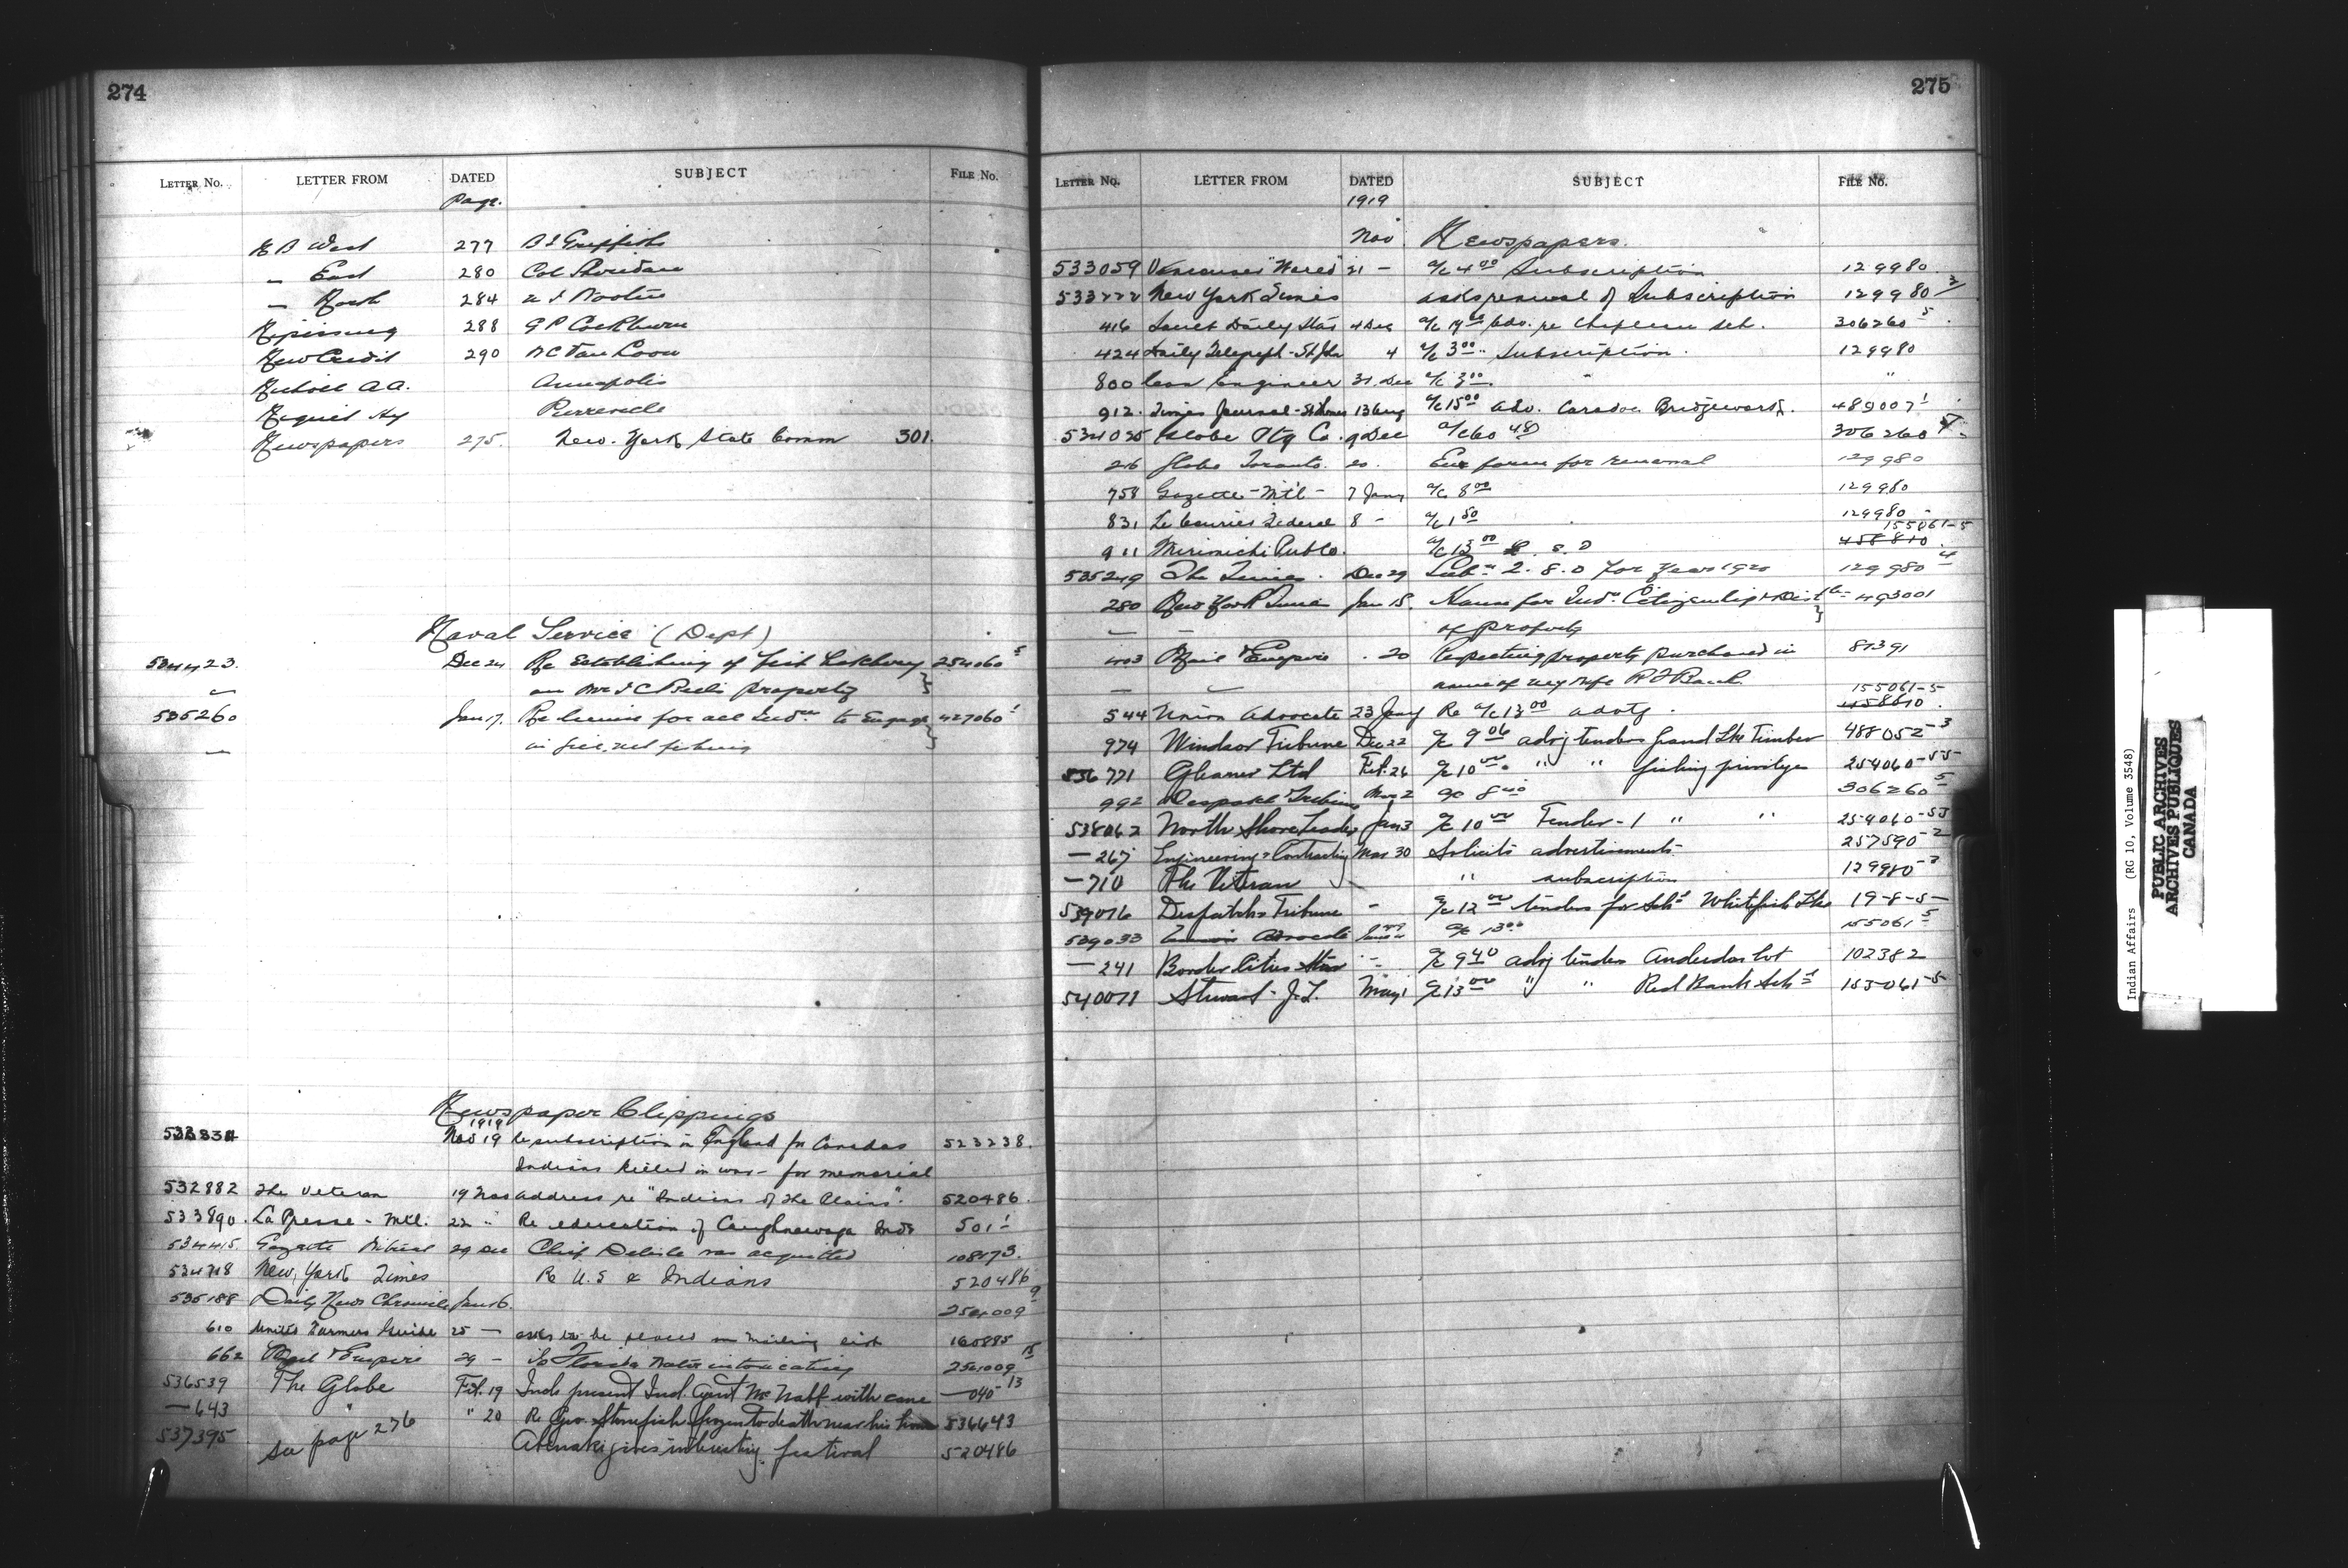 274
LETTER No. LETTER FROM DATED SUBJECT FILE No.
Page.
N B West 277
" East 280 Col Sheridan
" North 284
Nipissing 288 G P Cockburn
New Credit 290 W C Van Loon
A.A. Annapolis
Pierreville
Newspapers 275. New. York State Comm 301.
Naval Service (Dept)
534423. Dec 24 Re Establishing of Fish Hatchery 254060 5
on property
535260 Jan 17. Re license for all Inds to Engage 427060 1
in fishing
Newspaper Clippings
1919
Nov 19 Re subscription in England for Canadas 523238.
Indians killed in war - for memorial
532882 The Veteran 19 Nov address re "Indians of the Plains". 520486.
533890. La Presse - Mtl. 22 " Re education of Caughnawaga Inds 501 1
534415. Gazette 29 Dec Chief Delisle was acquitted 108173.
534718 New York Times Re U.S & Indians 520486
535188 Daily News Chronicle Jan 16. 254009 9
610 United Farmers Guide 25 - asks to be placed on mailing list 160885
662 Mail & Empire 29 - Is Florida Water intoxicating 254009 15
536539 The Globe Feb. 19 Inds present Ind. Agent McNabb with cane —040-13
—643 " " 20 Re Geo. Stonefish frozen to death near his home 536643
537395 see page 276 Abenaki gives interesting festival 520486
275
LETTER No. LETTER FROM DATED SUBJECT FILE No.
1919
Nov. Newspapers.
533059 Vancouver "World" 21 - a/c 4.00 Subscription 129980.
533222 New York Times asks renewal of Subscription 129980 2
416 Daily Star 4 Dec a/c Adv. re Chapleau Sch. 306260 5
424 Daily Telegraph - St John 4 a/c 3.00 Subscription. 129980
800 Can Engineer 31. Dec a/c 3.00. " "
912. Times Journal - St Thomas 13 Aug a/c 15.00 adv. Caradoc Bridgework. 489007 1
534025 Globe Ptg Co. 9 Dec a/c 60 48 306260
216 Globe Toronto. 20. Enc form for renewal 129980
758 Gazette - Mtl - 7 Jany a/c 8.00 129980
831 Le Courrier Federal 8 - a/c 1.50 129980
155061-5
911 Mirimichi Publ a/c 13.00 458810
535249 The Times. Dec 29 Subn 2. 8. 0 for year 1920 129980 4
280 New York Times Jan 15. for Indn Citizenship & Dist 493001
of property
403 Mail & Empire . 20 Respecting property purchased in 87391
name of my wife
155061-5
544 Union Advocate 23 Jany Re a/c 13.00 advtg. 458810.
974 Windsor Tribune Dec 22 a/c 9.06 advg tenders Grand Lke Timber 488052-3
536771 Gleaner Ltd Feb. 26 a/c 10.00 " " fishing privilege 254060-55
992 Despatch Tribune Mar 2 a/c 8.40 306260 5
538062 North Shore Leader Jan 3 a/c 10.00 Tender-1 " " 254060-55
—267 Engineering & Contracting Mar 30 Solicits advertisements 257590-2
—710 The Veteran " subscription 129980-2
539016 Despatch & Tribune " a/c 12.00 tenders for Schl Whitefish Lke 19-8-5-
539033 Union Advocate a/c 13.00 155061 5
—241 Border Cities Star " a/c 9.40 advg tenders Anderdon lot 102382
540071 Stewart - J.L. May 1 a/c 13.00 " " Red Bank Schl 155061-5
Indian Affairs (RG 10, Volume 3548)
PUBLIC ARCHIVES
ARCHIVES PUBLIQUES
CANADA